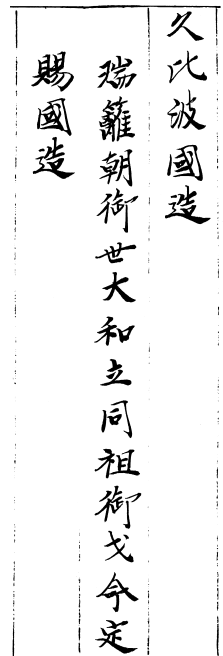 久比波國造
瑞籬朝御世大和立同祖御戈今定
賜國造